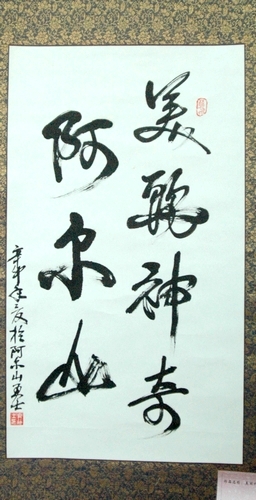 美丽神奇
阿尔山
辛卯年夏於阿尔山